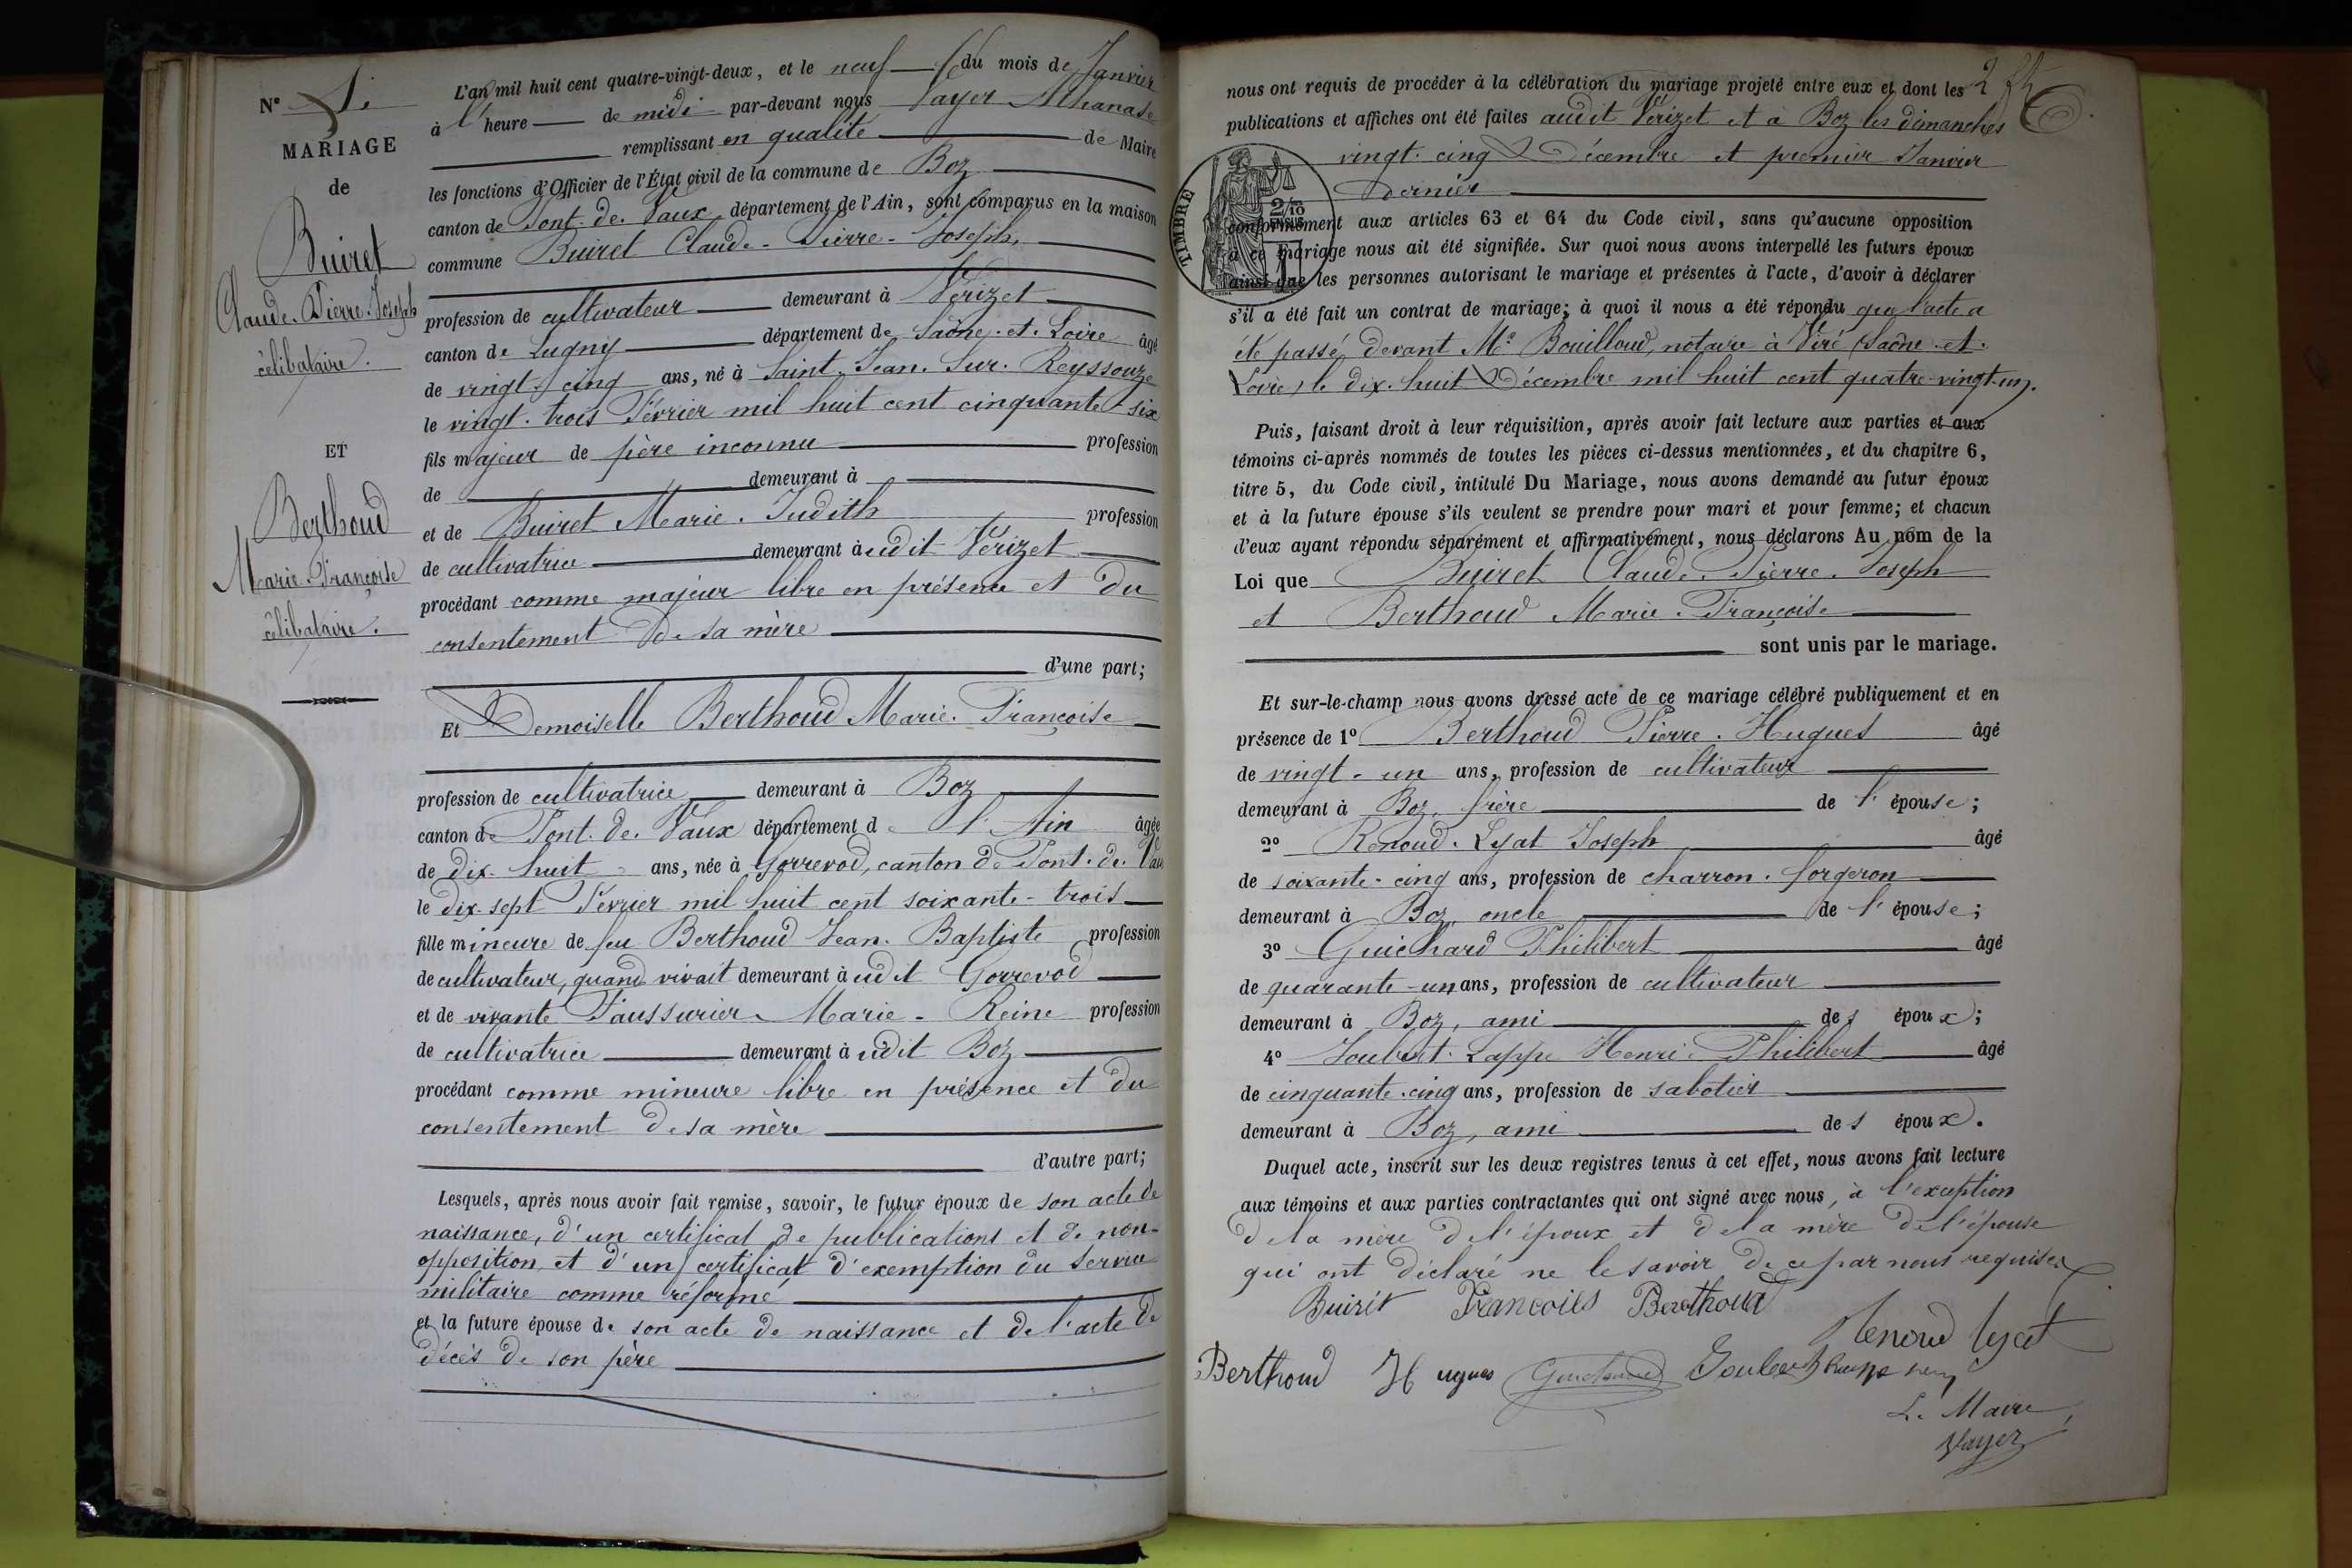 N° 1.
MARIAGE
de
Buiret
Claude. Pierre. Joseph
célibataire.
ET
Berthoud
Marie. Françoise
célibataire.
L'an mil huit cent quatre-vingt-deux, et le neuf du mois de Janvier
à l' heure de midi par-devant nous Vayer Athanase
remplissant en qualité de Maire
les fonctions d'Officier de l'État civil de la commune de Boz
canton de Pont. de. Vaux, département de l'Ain, sont comparus en la maison
commune Buiret Claude. Pierre. Joseph,
profession de cultivateur demeurant à Vérizet
canton de Lugny département de Saône. et. Loire âgé
de vingt. cinq ans, né à Saint. Jean. Sur. Reyssouze
le vingt. trois Février mil huit cent cinquante-six
fils majeur de père inconnu profession
de demeurant à
et de Buiret Marie. Judith profession
de cultivatrice demeurant àudit Vérizet
procédant comme majeur libre en présence et du
consentement de sa mère
d'une part;
Et Demoiselle Berthoud Marie. Françoise
profession de cultivatrice demeurant à Boz
canton de Pont. de. Vaux département de l'Ain âgée
de dix-huit ans, née à Gorrevod, canton de Pont. de. Vaux
le dix-sept Février mil huit cent soixante-trois
fille mineure de feu Berthoud Jean. Baptiste profession
de cultivateur, quand vivait demeurant àudit Gorrevod
et de vivante Faussurier Marie-Reine profession
de cultivatrice demeurant àudit Boz
procédant comme mineure libre en présence et du
consentement de sa mère
d'autre part;
Lesquels, après nous avoir fait remise, savoir, le futur époux de son acte de
naissance, d'un certificat de publications et de non-
opposition et d'un certificat d'exemption du service
militaire comme réformé
et la future épouse de son acte de naissance et de l'acte de
décès de son père
2
nous ont requis de procéder à la célébration du mariage projeté entre eux et dont les
publications et affiches ont été faites audit Vérizet et à Boz les dimanches
vingt. cinq Décembre et premier Janvier
dernier
TIMBRE
2/10
EN SUS
conformément aux articles 63 et 64 du Code civil, sans qu'aucune opposition
à ce mariage nous ait été signifiée. Sur quoi nous avons interpellé les futurs époux
ainsi que les personnes autorisant le mariage et présentes à l'acte, d'avoir à déclarer
s'il a été fait un contrat de mariage; à quoi il nous a été répondu que l'acte a
été passé devant Me Bouilloud, notaire à Viré (Saône. et.
Loire) le dix. huit Décembre mil huit cent quatre-vingt-un.
Puis, faisant droit à leur réquisition, après avoir fait lecture aux parties et aux
témoins ci-après nommés de toutes les pièces ci-dessus mentionnées, et du chapitre 6,
titre 5, du Code civil, intitulé Du Mariage, nous avons demandé au futur époux
et à la future épouse s'ils veulent se prendre pour mari et pour femme; et chacun
d'eux ayant répondu séparément et affirmativement, nous déclarons Au nom de la
Loi que Buiret Claude. Pierre. Joseph
et Berthoud Marie. Françoise
sont unis par le mariage.
Et sur-le-champ nous avons dressé acte de ce mariage célébré publiquement et en
présence de 1° Berthoud Pierre. Hugues âgé
de vingt-un ans, profession de cultivateur
demeurant à Boz, frère de l'épouse;
2° Renoud. Lyat Joseph âgé
de soixante-cinq ans, profession de charron. forgeron
demeurant à Boz, oncle de l'épouse;
3° Guichard Philibert âgé
de quarante-un ans, profession de cultivateur
demeurant à Boz, ami des époux;
4° Joubert. Lappe Henri. Philibert âgé
de cinquante. cinq ans, profession de sabotier
demeurant à Boz, ami des époux.
Duquel acte, inscrit sur les deux registres tenus à cet effet, nous avons fait lecture
aux témoins et aux parties contractantes qui ont signé avec nous, à l'exception
de la mère de l'époux et de la mère de l'épouse
qui ont déclaré ne le savoir de ce par nous requises.
Buirét Francoies Berethoud
Renoud Lyat
Berthoud Hugues Guichard Joubert
Le Maire,
Vayer